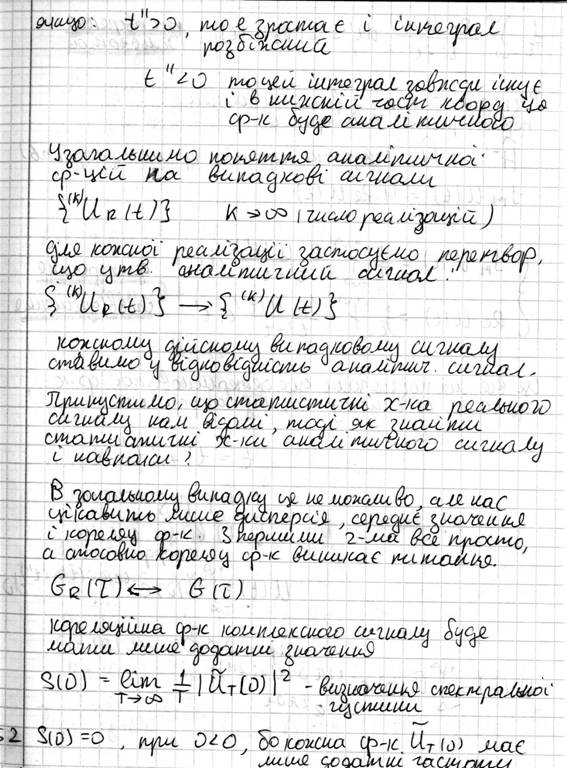 якщо: t">0, то e зростає і інтеграл
розбіжний
t"<0 то цей інтеграл завжди існує
і в нижній част коорд ця
ф-к буде аналітичною
Узагальнимо поняття аналітичної
ф-цій на випадкові сигнали
{⁽ᵏ⁾U_R(t)} K→∞ (число реалізацій)
для кожної реалізації застосуємо перетвор,
що утв. аналітичний сигнал:
{⁽ᵏ⁾U_R(t)} → {⁽ᵏ⁾U(t)}
кожному дійсному випадковому сигналу
ставимо у відповідність аналітич. сигнал.
Припустимо, що статистичні х-ка реального
сигналу нам відомі, тоді як знайти
статистичні х-ки аналітичного сигналу
і навпаки?
В загальному випадку це не можливо, але нас
цікавить лише дисперсія, середнє значення
і кореляц ф-к. З першими 2-ма все просто,
а стосовно кореляц ф-к виникає питання.
G_R(τ) ↔ G(τ)
кореляційна ф-к комплексного сигналу буде
мати лише додатні значення
S(ʋ) = lim_{T→∞} 1/T |Ũ_T(ʋ)|² - визначення спектральної
густини
S(ʋ)=0, при ʋ<0, бо кожна ф-к. Ũ_T(ʋ) має
лише додатні частоти